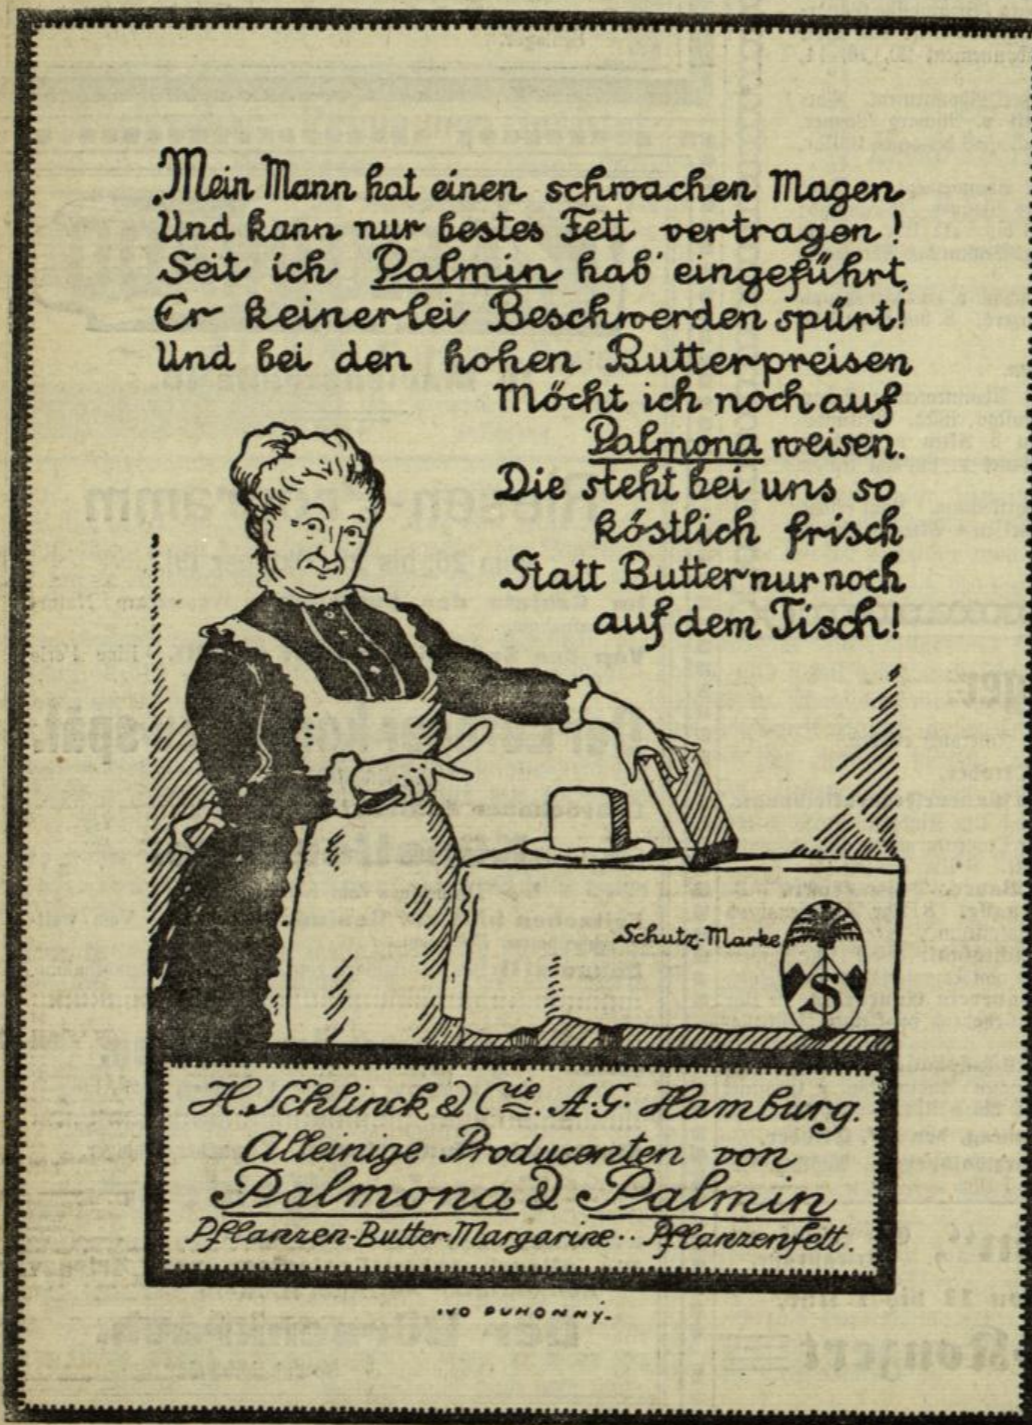 „Mein Mann hat einen schwachen Magen
Und kann nur bestes Fett vertragen!
Seit ich Palmin hab' eingeführt,
Er keinerlei Beschwerden spürt!
Und bei den hohen Butterpreisen
Möcht ich noch auf
Palmona weisen.
Die steht bei uns so
köstlich frisch
Statt Butter nur noch
auf dem Tisch!
Schutz-Marke
S
H. Schlinck & Cie. A.G. Hamburg.
Alleinige Producenten von
Palmona & Palmin
Pflanzen-Butter-Margarine·· Pflanzenfett.
IVO PUHONNÝ.